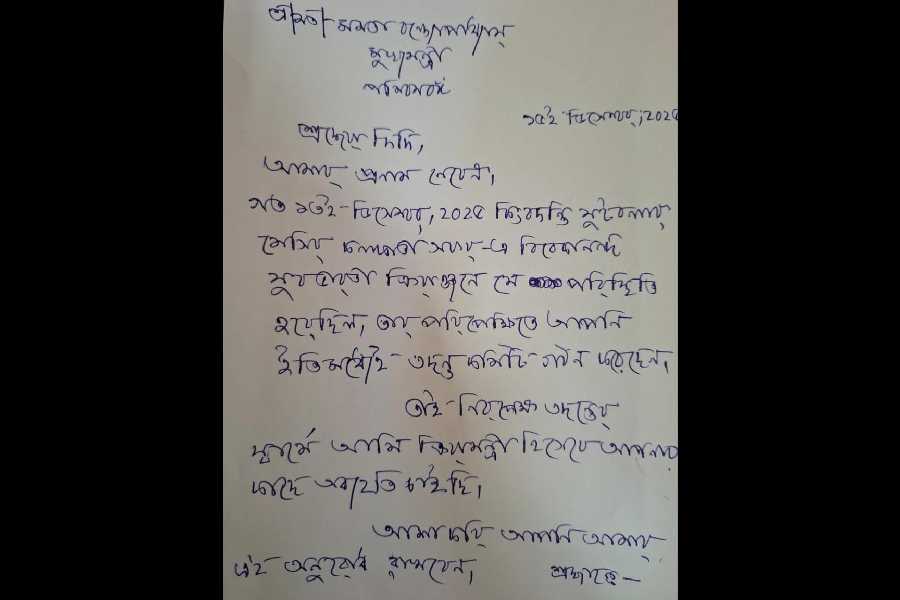 শ্রীমতী মমতা বন্দ্যোপাধ্যায়
মুখ্যমন্ত্রী
পশ্চিমবঙ্গ
১৫ই ডিসেম্বর, 2025
শ্রদ্ধেয় দিদি,
আমার প্রণাম নেবেন।
গত ১৩ই-ডিসেম্বর, 2025 কিংবদন্তি ফুটবলার
মেসির কলকাতা সফর-এ বিবেকানন্দ
যুবভারতী ক্রীড়াঙ্গনে যে পরিস্থিতি
হয়েছিল, তার পরিপ্রেক্ষিতে আপনি
ইতিমধ্যেই তদন্ত কমিটি গঠন করেছেন।
তাই নিরপেক্ষ তদন্তের
স্বার্থে আমি ক্রীড়ামন্ত্রী হিসেবে আপনার
কাছে অব্যহতি চাইছি।
আশা করি আপনি আমার
এই অনুরোধ রাখবেন। শ্রদ্ধান্তে—